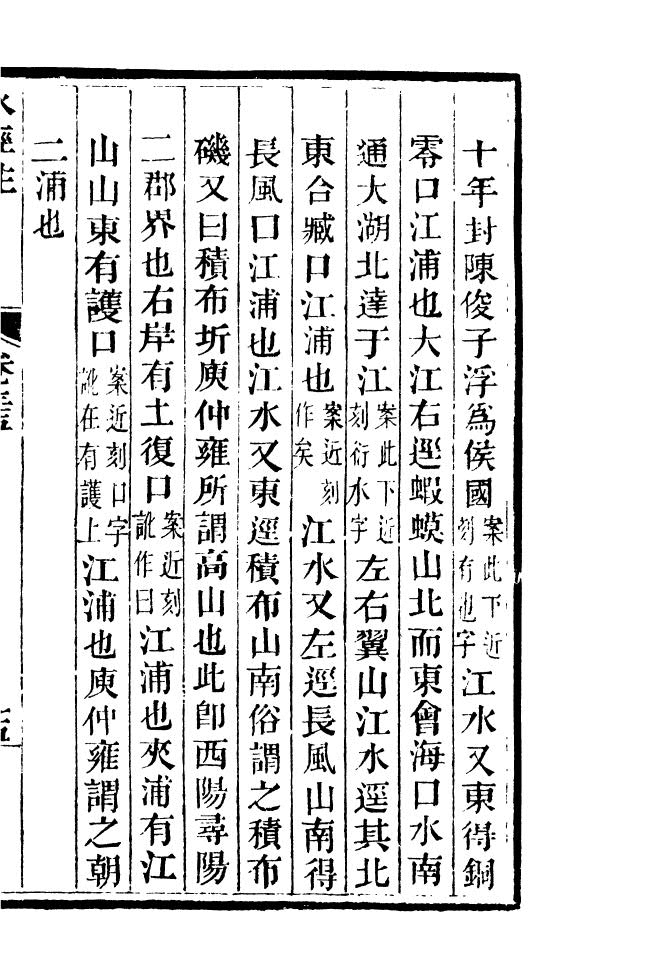 十年封陳俊子浮爲侯國案此下近刻有也字江水又東得銅
零口江浦也大江右逕蝦蟆山北而東會海口水南
通大湖北達于江案此下近刻衍水字左右翼山江水逕其北
東合臧口江浦也案近刻作矣江水又左逕長風山南得
長風口江浦也江水又東逕積布山南俗謂之積布
磯又曰積布圻庾仲雍所謂高山也此卽西陽尋陽
二郡界也右岸有土復口案近刻訛作曰江浦也夾浦有江
山山東有護口案近刻口字訛在有護上江浦也庾仲雍謂之朝
二浦也
水經注